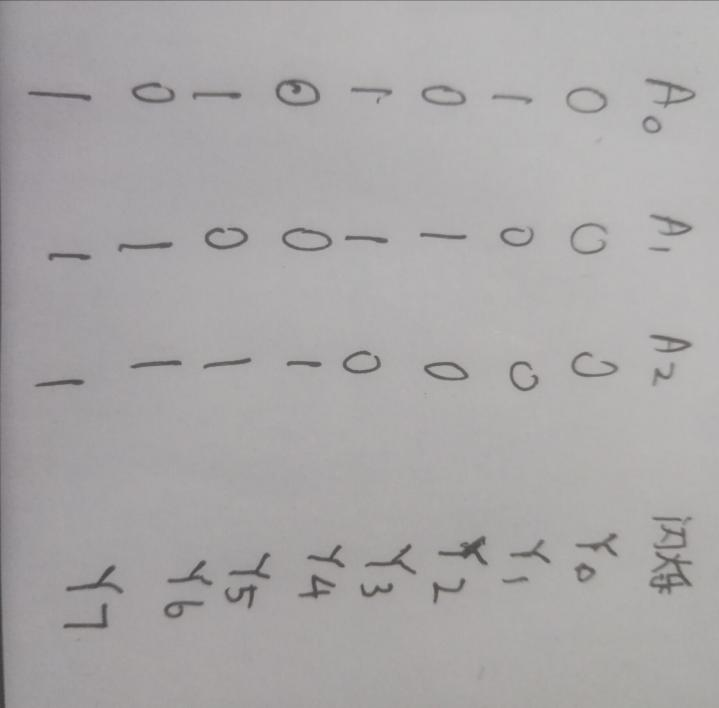 A₀ A₁ A₂ 闪烁
0 0 0 Y₀
1 0 0 Y₁
0 1 0 Y₂
1 1 0 Y₃
0 0 1 Y₄
1 0 1 Y₅
0 1 1 Y₆
1 1 1 Y₇